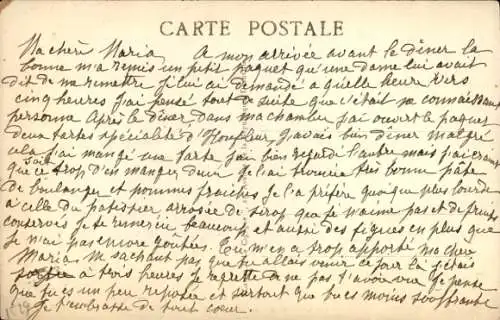 CARTE POSTALE
Ma chère Maria A mon arrivée avant le dîner la
bonne m'a remis un petit paquet qu'une dame lui avait
dit de me remettre Je lui ai demandé a quelle heure vers
cinq heures j'ai pensé tout de suite que c'était
personne Après le dîner dans ma chambre j'ai ouvert le paquet
deux tartes spécialité d'Honfleur J'avais bien dîner malgré
cela j'ai mangé une tarte j'ai bien regardé l'autre mais j'ai craint
que ce soit trop d'en manger deux Je l'ai trouvée très bonne pâte
de boulanger et pommes fraîches Je la préfère quoique plus lourde
à celle du patissier arrosée de sirop que je n'aime pas et de fruits
conservés je te remercie beaucoup et aussi des figues en plus que
je n'ai pas encore goutées. Tu m'en a trop apporté ma chère
Maria. Ne sachant pas que tu allais venir ce jour là j'étais
sortie à trois heures Je regrette de ne pas t'avoir vue Je pense
que tu es un peu reposée et surtout que tu es moins souffrante
Je t'embrasse de tout cœur.